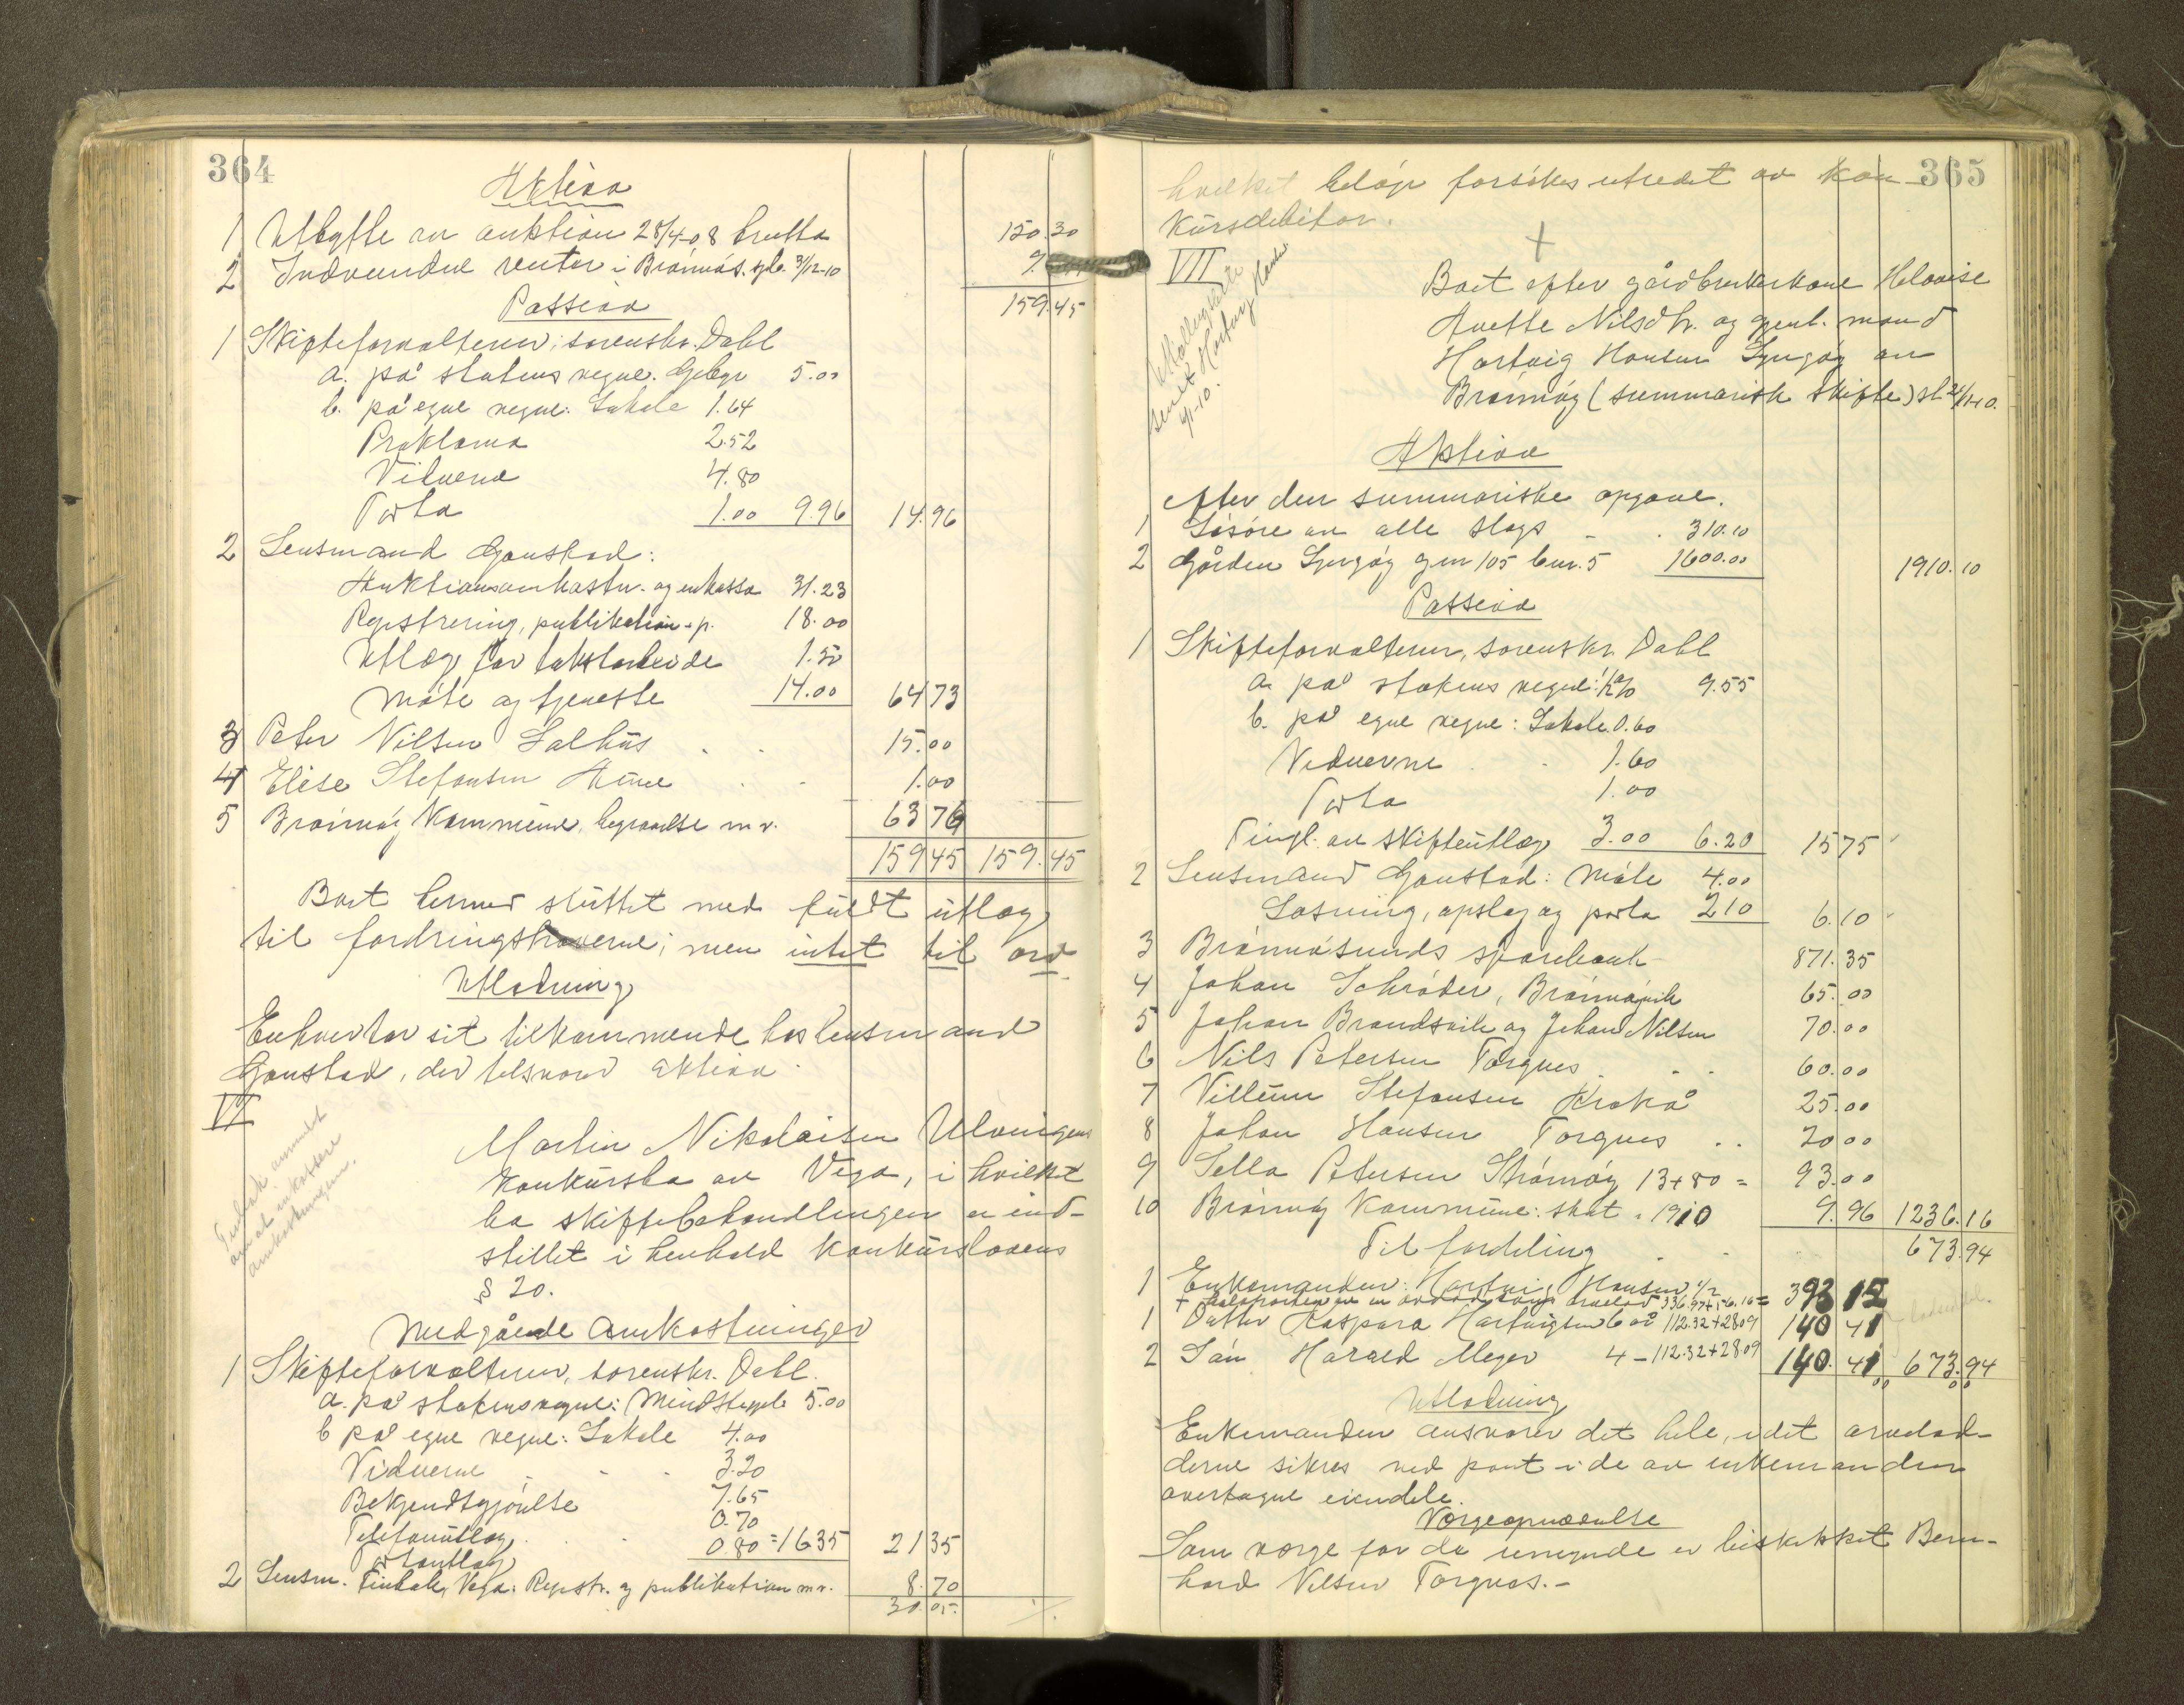 364
Aktiva
1 Utbytte av auktion 28/4-08 brutto 150.30
2 Indvundne renter i Brönnös. spb. 31/12-10 9.
159.45
Passiva
1 Skifteforvalteren, sorenskr. Dahl
a. på statens vegne. Gebyr 5.00
b. på egne vegne: Lokale 1.64
Proklama 2.52
Vidnerne 4.80
Porto 1.00 9.96 14.96
2 Lensmand Gaustad:
Auktionsomkostn. og inkasso 31.23
Registrering, publikation o. p. 18.00
Utlæg for takstarbeide 1.50
Möte og tjeneste 14.00 64 73
3 Peter Nilsen Salhus 15.00
4 Elise Stefansen 1.00
5 Brönnöy kommune, begravelse m.v. 63 76
159 45 159.45
Boet hermed sluttet med fuldt utlæg
til fordringshaverne; men intet til arv
Utlodning
Enhver tar sit tilkommende hos lensmand
Gaustad, der tilsvarer aktiva.
VI
Martin Nikolaisen Ulvingens
konkursbo av Vega, i hvilket
bo skiftebehandlingen er ind-
stillet i henhold konkurslovens
§ 20.
Medgåede omkostninger
1 Skifteforvalteren, sorenskr. Dahl.
a. på statens vegne: Mindstegeb. 5.00
b på egne vegne: Lokale 4.00
Vidnerne 3.20
Bekjendtgjörelse 7.65
Telefonutlæg 0.70
Portoutlæg 0.80 = 16 35 21 35
2 Lensm. Vega: Registr. og publikation m.v. 8.70
30.05
365
hvilket belöp forsökes utredet av kon-
kursdebitor.
VII
Boet efter gårdbrukerkone Helovise
Anette Nilsdtr. og gjenl. mand
Hartvig Hansen Lyngöy av
Brönnöy (summarisk skifte) sl. 24/1-10.
Aktiva
efter den summariske opgave.
1 Lösöre av alle slags 310.10
2 Gården Lyngöy gnr 105 bnr. 5 1600.00 1910.10
Passiva
1 Skifteforvalteren, sorenskr. Dahl
a. på statens vegne: 1/2 % 9.55
b. på egne vegne: Lokale 0.60
Vidnerne 1.60
Porto 1.00
Tingl. av skifteutlæg 3.00 6.20 15 75
2 Lensmand Gaustad: Möte 4.00
Læsning, opslag og porto 2 10 6.10
3 Brönnösunds sparebank 871.35
4 Johan Schröder, Brönnöyvik 65.00
5 Johan Brandsvik og Johan Nilsen 70.00
6 Nils Petersen Torgnes 60.00
7 Villum Stefansen Krokå 25.00
8 Johan Hansen Torgnes 20 00
9 Sella Petersen Strömöy 13+80 = 93.00
10 Brönnöy kommune: skat 1910 9.96 1236.16
Til fordeling 673.94
1 Enkemanden: Hartvig Hansen 1/2
336.97+56.16= 393 12
1 Datter Kaspara Hartvigsen 6 år 112.32+28 09 140 41
2 Sön Harald Meyer 4 - 112.32+28 09 140.41 673.94
Utlodning
Enkemanden ansvarer det hele, idet arvelod-
derne sikres ved pant i de av enkemanden
overtagne eiendele.
Vergeopnævnelse
Som verge for de umynde er beskikket Bern-
hard Nilsen Torgnes.-